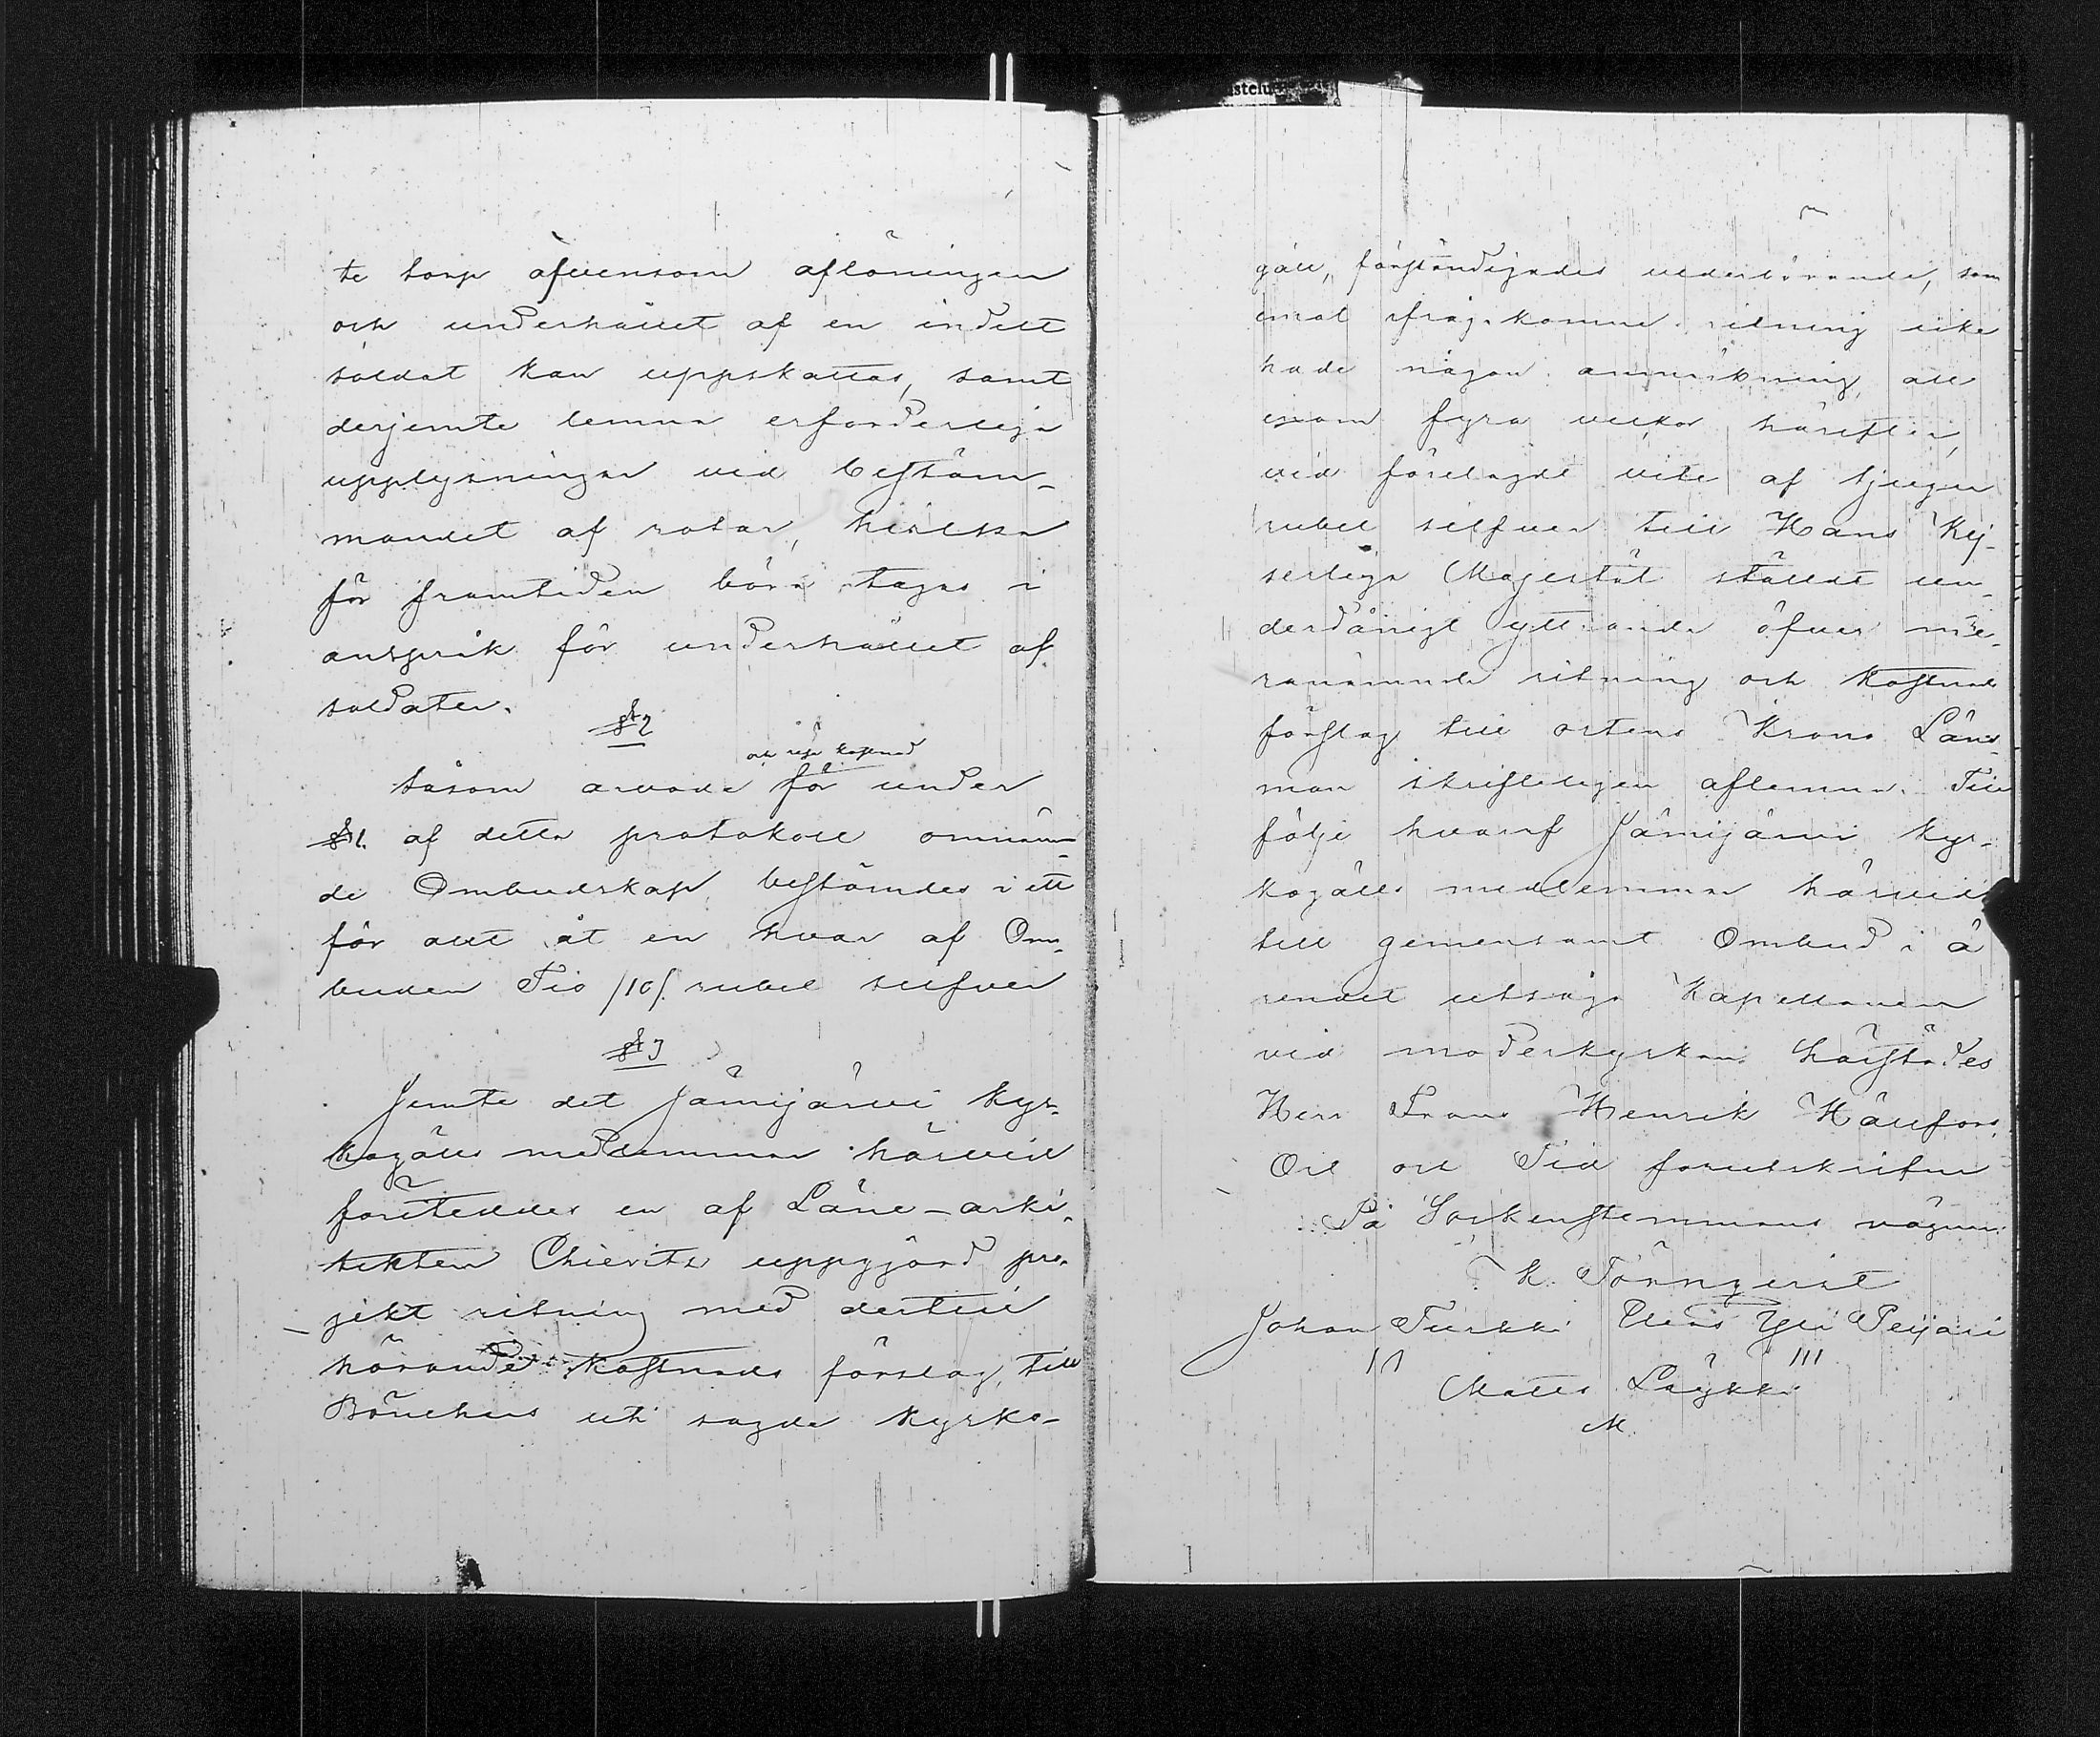 te torp äfvensom aflöningen
och underhållet af en indelt
soldat kan uppskattas, samt
derjemte lemna erforderliga
upplysningar vid bestäm-
mandet af rotar, hvilka
för framtiden böra tagas i
anspråk för underhållet af
soldater.
§ 2
och rese kostnad
Såsom arvode för under
§ 1. af detta protokoll omnäm-
de Ombudskap, bestämdes i ett
för allt åt en hvar af Om-
buden Tio /10/. rubel silfver
§ 3
Jemte det Jämijärvi kyr-
kogälls medlemmar härvid
företeddes en af Läne-arki-
tekten Chiewitz uppgjord pro-
jekt ritning med dertill
hörande kostnads förslag, till
Bönehus uti sagde kyrko-
gäll, förständigades vederbörande, som
emot ifrågakomne ritning icke
hade någon anmärkning, att
inom fyra veckor härefter,
vid förelagdt vite af tjugu
rubel silfver till Hans Kej-
serliga Majestät ställdt un-
derdånigt yttrande öfver me-
ranämnde ritning och kostnads
förslag till ortens Krono Läns-
man skriftligen aflemna. Till
följe hvaraf Jämijärvi kyr-
kogälls medlemmar härvid
till gemensamt Ombud i ä
rendet utsågo Kapellanen
vid moderkyrkan härstädes
Herr Frans Henrik Hällfors.
Ort och Tid förutskrifne
På Sockenstemmans vägnar:
K. Törnqvist
Johan Turkki Elias Yli Peijari
Matts Läykki
M.